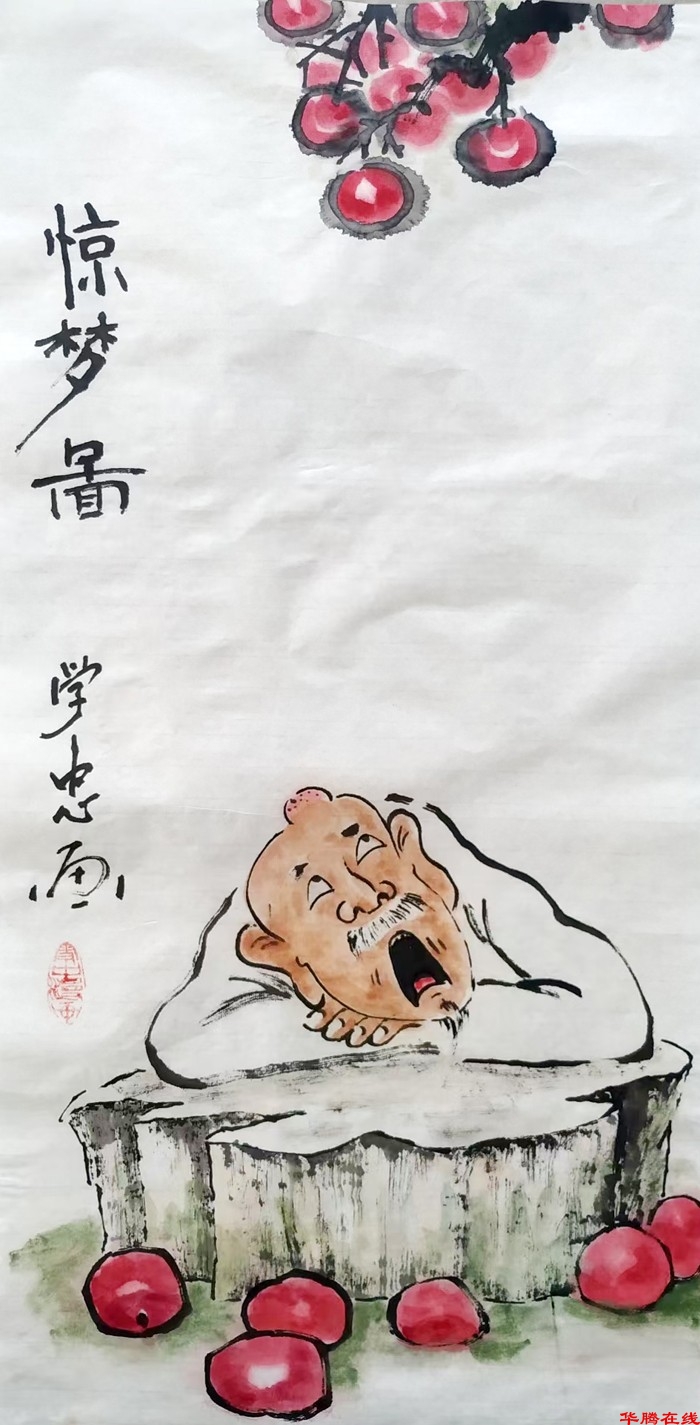 惊梦图
学忠画
华腾在线